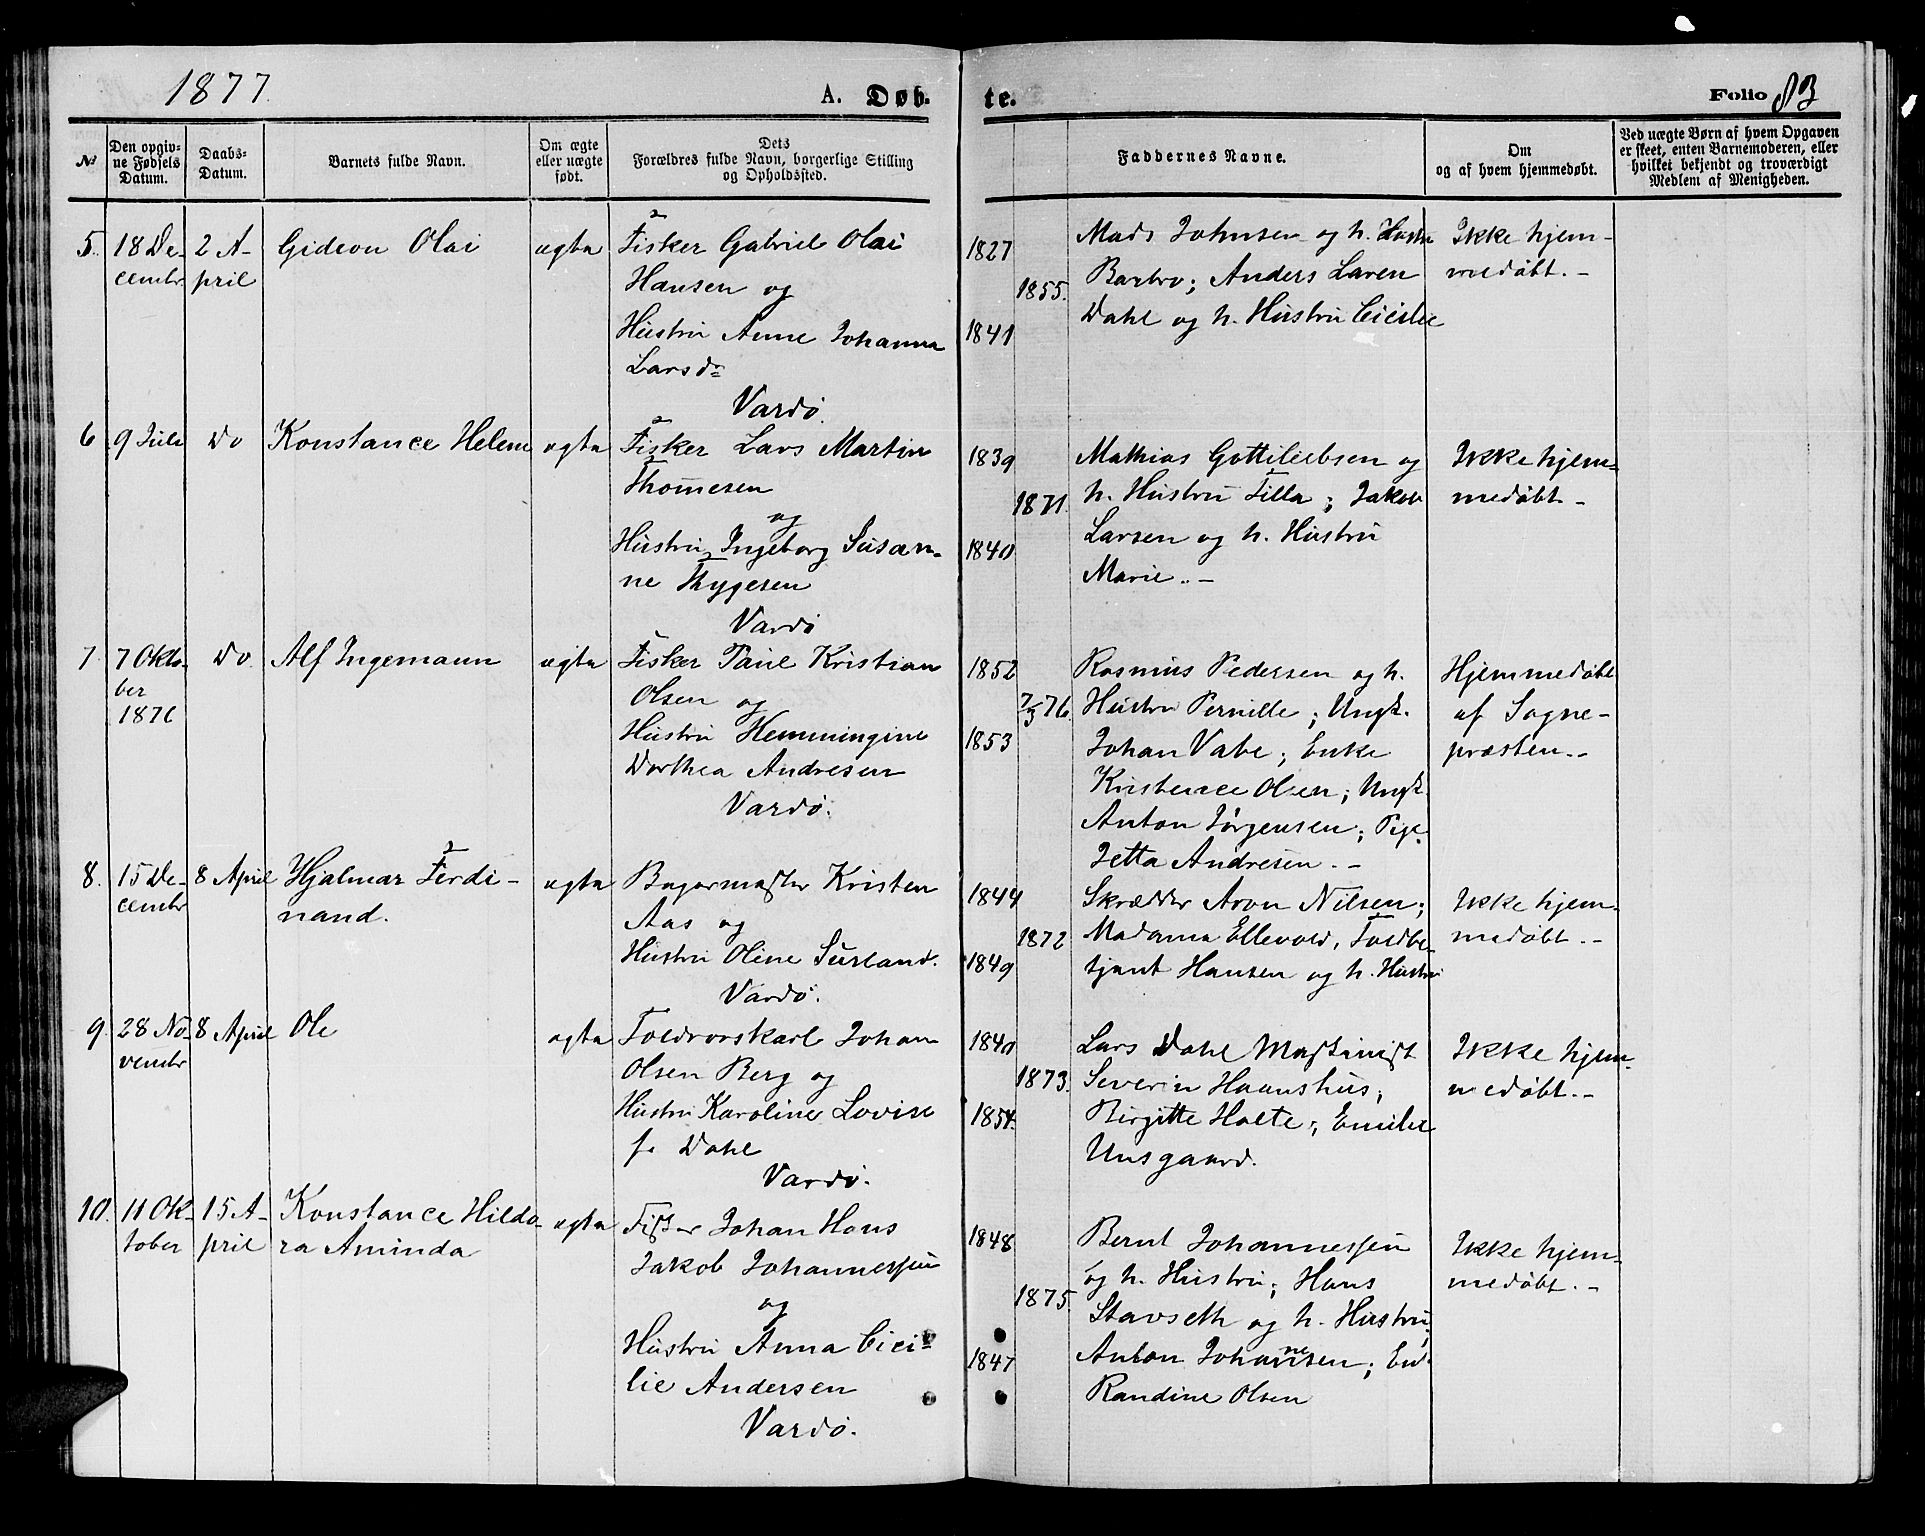 1877.
A. Døb-
te.
Folio 83
No
Den opgiv-
ne Fødsels
Datum.
Daabs-
Datum.
Barnets fulde Navn.
Om ægte
eller uægte
født.
Dets
Forældres fulde Navn, borgerlige Stilling
og Opholdssted.
Faddernes Navne.
Om
og af hvem hjemmedøbt.
Ved uægte Børn af hvem Opgaven
er skeet, enten Barnemoderen, eller
hvilket bekjendt og troværdigt
Medlem af Menigheden.
5. 18 De-
cembr
2 A-
pril
Gideon Olai
ægte
Fisker Gabriel Olai
Hansen og
Hustru Anne Johanna
Larsdr
Vardø
1827
1855.
1841
Mads Johnsen og h. Hustru
Barbro; Anders Laren
Dahl og h. Hustru Cicilie
Ikke hjem-
medøbt.-
6 9 Juli
Do
Konstance Helene
ægte
Fisker Lars Martin
Thomesen
og
Hustru Ingeborg Susan-
ne Thygesen
Vardø
1839
1871.
1840
Mathias Gottliebsen og
h. Hustru Filla; Jakob
Larsen og h. Hustru
Marie.-
Ikke hjem-
medøbt-
7. 7 Okto-
ber
1876
Do.
Alf Ingemann
ægte
Fisker Paul Kristian
Olsen og
Hustru Hemmingine
Dorthea Andresen
Vardø.
1852
7/3 76.
1853
Rasmus Pedersen og h.
Hustru Pernille; Ungk.
Johan Vabe; Enke
Kristence Olsen; Ungk.
Anton Jørgensen; Pige
Jetta Andresen.-
Hjemmedøbt
af Sogne-
præsten.-
8. 15 De-
cembr
8 April
Hjalmar Ferdi-
nand.
ægte
Bagermester Kristen
Aas og
Hustru Oline Surland.
Vardø.
1844
1872
1849
Skrædder Aron Nilsen;
Madame Ellevold, Toldbe-
tjent Hansen og h. Hustru
Ikke hjem-
medøbt.-
9. 28 No-
vembr
8 April
Ole
ægte
Toldrorskarl Johan
Olsen Berg og
Hustru Karoline Lovise
f. Dahl
Vardø.
1840
1873.
1854.
Lars Dahl Maskinist
Severin Haanshus;
Birgitte Holte; Emilie
Unsgaard.
Ikke hjem-
medøbt.-
10. 11 Ok-
tober
15 A-
pril
Konstance Hildo-
ra Aminda
ægte
Fisker Johan Hans
Jakob Johannessen
og
Hustru Anna Cici-
lie Andersen
Vardø.
1848
1875.
1847
Bernt Johannessen
og h. Hustru; Hans
Stavseth og h. Hustru;
Anton Johannesen; Enk.
Randine Olsen
Ikke hjem-
medøbt.-